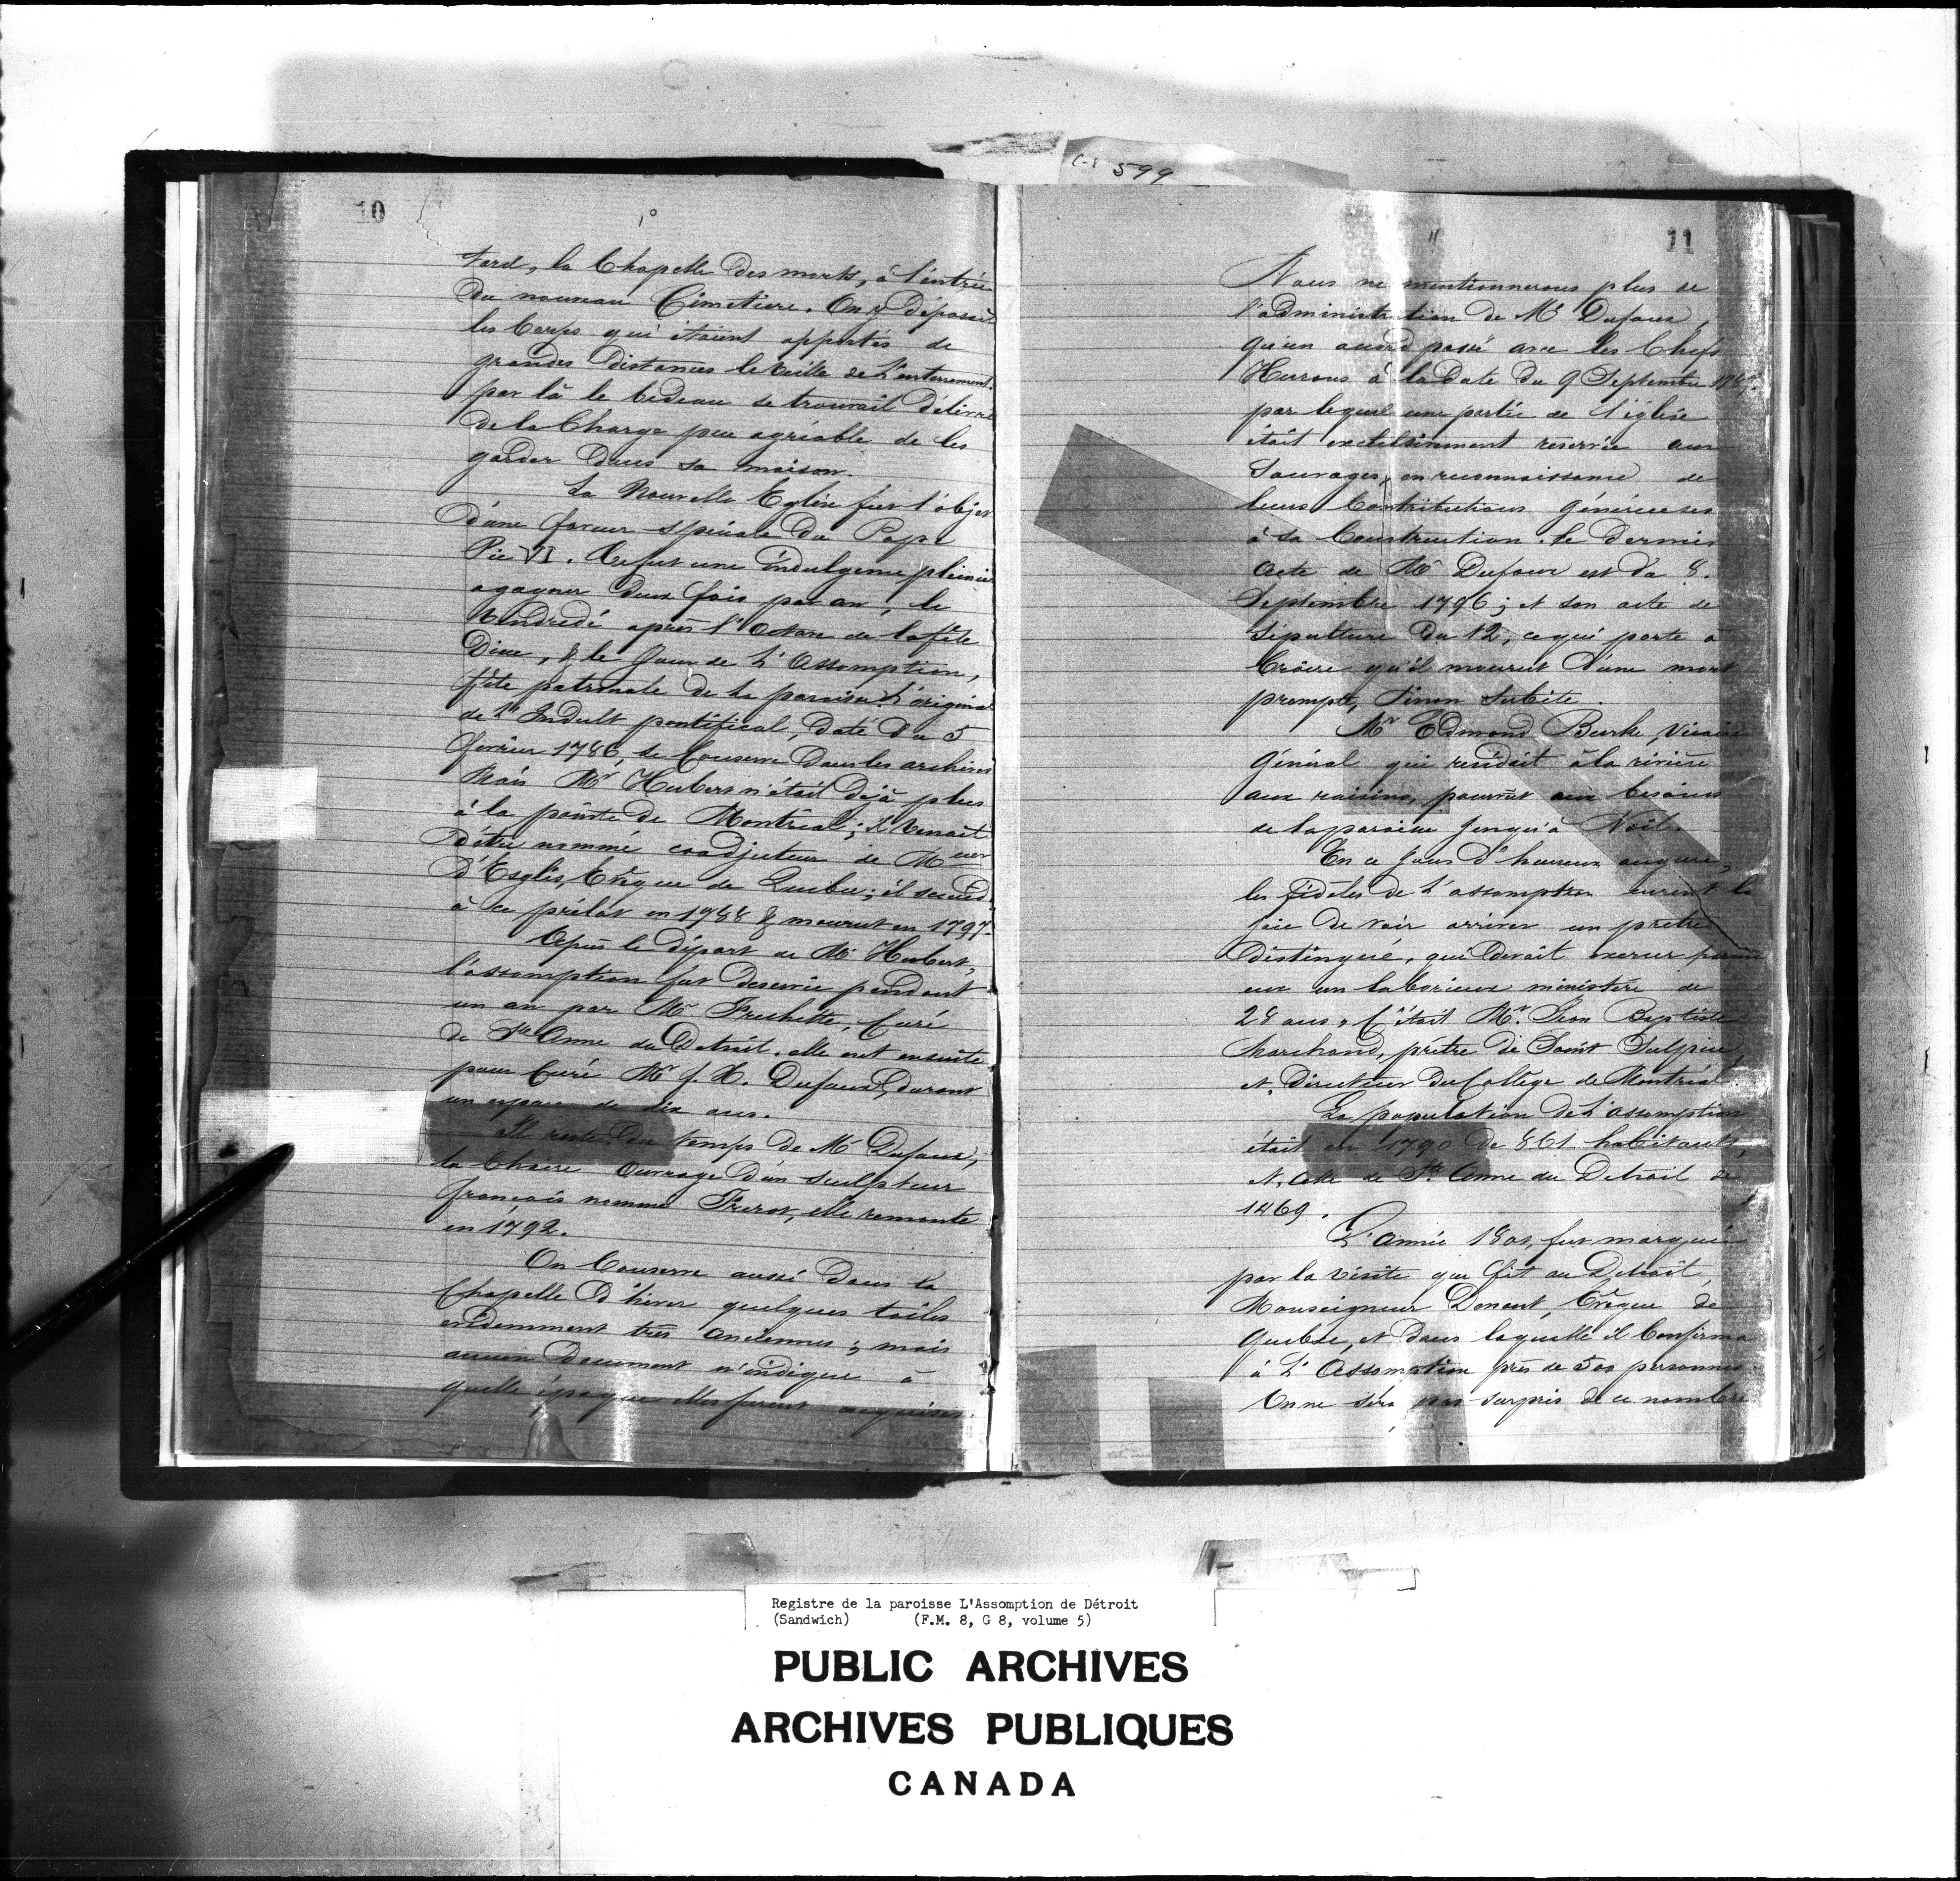 C-8 599
10
10
tard, la Chapelle des morts, à l'entrée
du nouveau Cimetiere. On y déposait
les Corps qui étaient apportés de
grandes distances la veille de l'enterrement.
par là le bedeau se trouvait délivré
de la Charge peu agréable de les
garder dans sa maison.
La Nouvelle Eglise fut l'objet
d'une faveur spéciale du Pape
Pie VI. Ce fut une indulgence plénière
a gagner deux fois par an, le
Vendredi après l'Octave de la fête
Dieu, & le Jour de L'Assomption,
fête patronale de la paroisse. L'original
de l'Indult pontifical, daté du 5
février 1786, se Conserve dans les archives
Mais Mr Hubert n'était déjà plus
à la pointe de Montréal; il venait
d'être nommé coadjuteur de Mgr
D'Esglis, Evêque de Quebec; il succéd
à ce prélat en 1788 & mourut en 1797.
Après le départ de Mr Hubert,
l'assomption fut desservie pendant
un an par Mr Frechette, Curé
de Ste Anne du Detroit. elle eut ensuite
pour Curé Mr f. X. Dufaux, durant
un espace de dix ans.
Il reste du temps de Mr Dufaux,
la Chaire Ouvrage d'un sculpteur
français nommé Frerot, elle remonte
en 1792.
On Conserve aussi dans la
Chapelle d'hiver quelques toiles
evidemment très anciennes; mais
aucun document n'indique à
quelle époque elles furent acquises.
11
11
Nous ne mentionnerons plus de
l'administration de Mr Dufaux,
qu'un accord passé avec les Chefs
Hurons à la date du 9 Septembre
par lequel une partie de l'église
était exclusivement reservée aux
Sauvages, en reconnaissance de
leurs Contributions généreuses
à sa Construction. le dernier
acte de Mr Dufaux est du 8.
Septembre 1796; et son acte de
sépulture du 12, ce qui porte à
Croire qu'il mourut d'une mort
prompte, sinon subite.
Mr Edmond Burke, Vicaire
Général qui résidait à la rivière
aux raisins, pourvut aux besoins
de la paroisse jusqu'à Noël.
En ce Jour d'heureux augure,
les fidèles de L'assomption eurent la
joie de voir arriver un prêtre
distingué, qui devait exercer parmi
eux un laborieux ministère de
28 ans. C'était Mr. Jean Baptiste
Marchand, prêtre de Saint Sulpice
et, Directeur du Collège de Montréal.
La population de L'assomption
était en 1790 de 861 habitants,
et, celle de Ste Anne du Detroit de
1469.
L'année 1801, fut marquée
par la visite que fit au Detroit,
Monseigneur Denaut, Evêque de
Quebec, et dans laquelle il Confirma
à L'Assomption près de 500 personnes
On ne sera pas surpris de ce nombre
Registre de la paroisse L'Assomption de Détroit
(Sandwich) (F.M. 8, G 8, volume 5)
PUBLIC ARCHIVES
ARCHIVES PUBLIQUES
CANADA